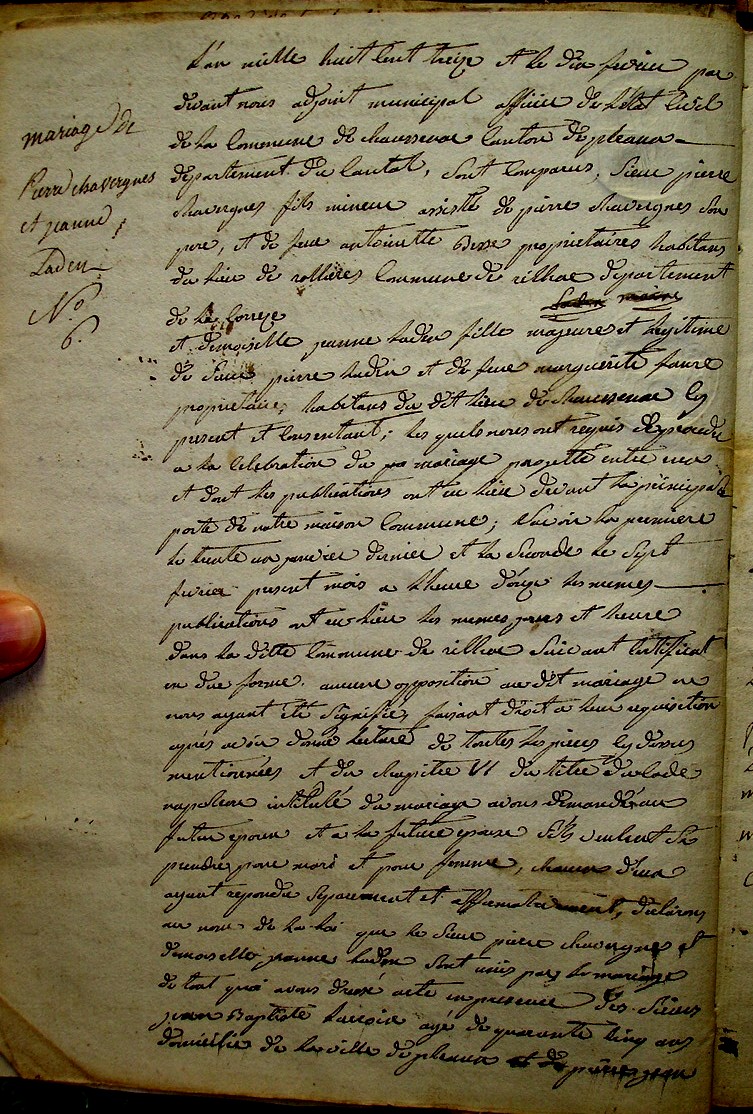 mariage de
Pierre chavergnes
et jeanne
Laden
N.o
6.
L'an mille huit cent treize et le dix fevrier par
devant nous adjoint municipal officier de l'état civil
de la Commune de chaussenac canton de pleaux
departement du Cantal, sont comparus, sieur pierre
chavergnes fils mineur assisté de pierre chavergnes son
pere, et de feue antoinette proprietaires habitans
du lieu de rollieres Commune de rilhac departement
de la Correze
et demoiselle jeanne Laden fille majeure et legitime
de sieur pierre Laden et de feue marguerite faure
proprietaire, habitans du dit lieu de chaussenac icy
present et consentant; les quels nous ont requis de proceder
a la celebration du mariage projetté entre eux
et dont les publications ont eu lieu devant la principale
porte de notre maison Commune; savoir la premiere
le trente un janvier dernier et la seconde le sept
fevrier present mois a l'heure d'onze les memes
publications ont eu lieu les memes jours et heure
dans la ditte Commune de rilhac suivant certificat
en due forme. aucune opposition au dit mariage ne
nous ayant été signifié, faisant droit a leur requisition
après avoir donné lecture de toutes les pieces cy dessus
mentionnées et du chapitre VI du titre du code
napoleon intitulé du mariage avons demandé au
futur epoux et a la future epouse s'ils veulent se
prendre pour mari et pour femme, chacun d'eux
ayant repondu separement et affirmativement, declarons
au nom de la loi que le sieur pierre chavergnes et
demoiselle jeanne Laden sont unis par le mariage
de tout quoi avons dressé acte en presence des sieurs
jean Baptiste age de quarante cinq ans
domicilié de la ville de pleaux